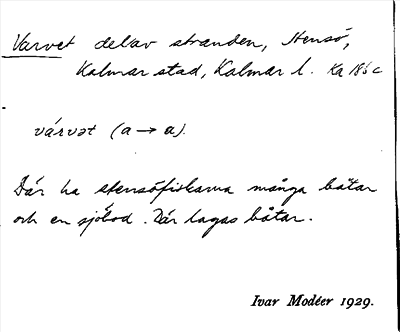 Varvet del av stranden, Stensö,
Kalmar stad, Kalmar l. Ka 186 c
várvət (a → a).
Där ha stensöfiskarna många båtar
och en sjöbod. Där lagas båtar.
Ivar Modéer 1929.